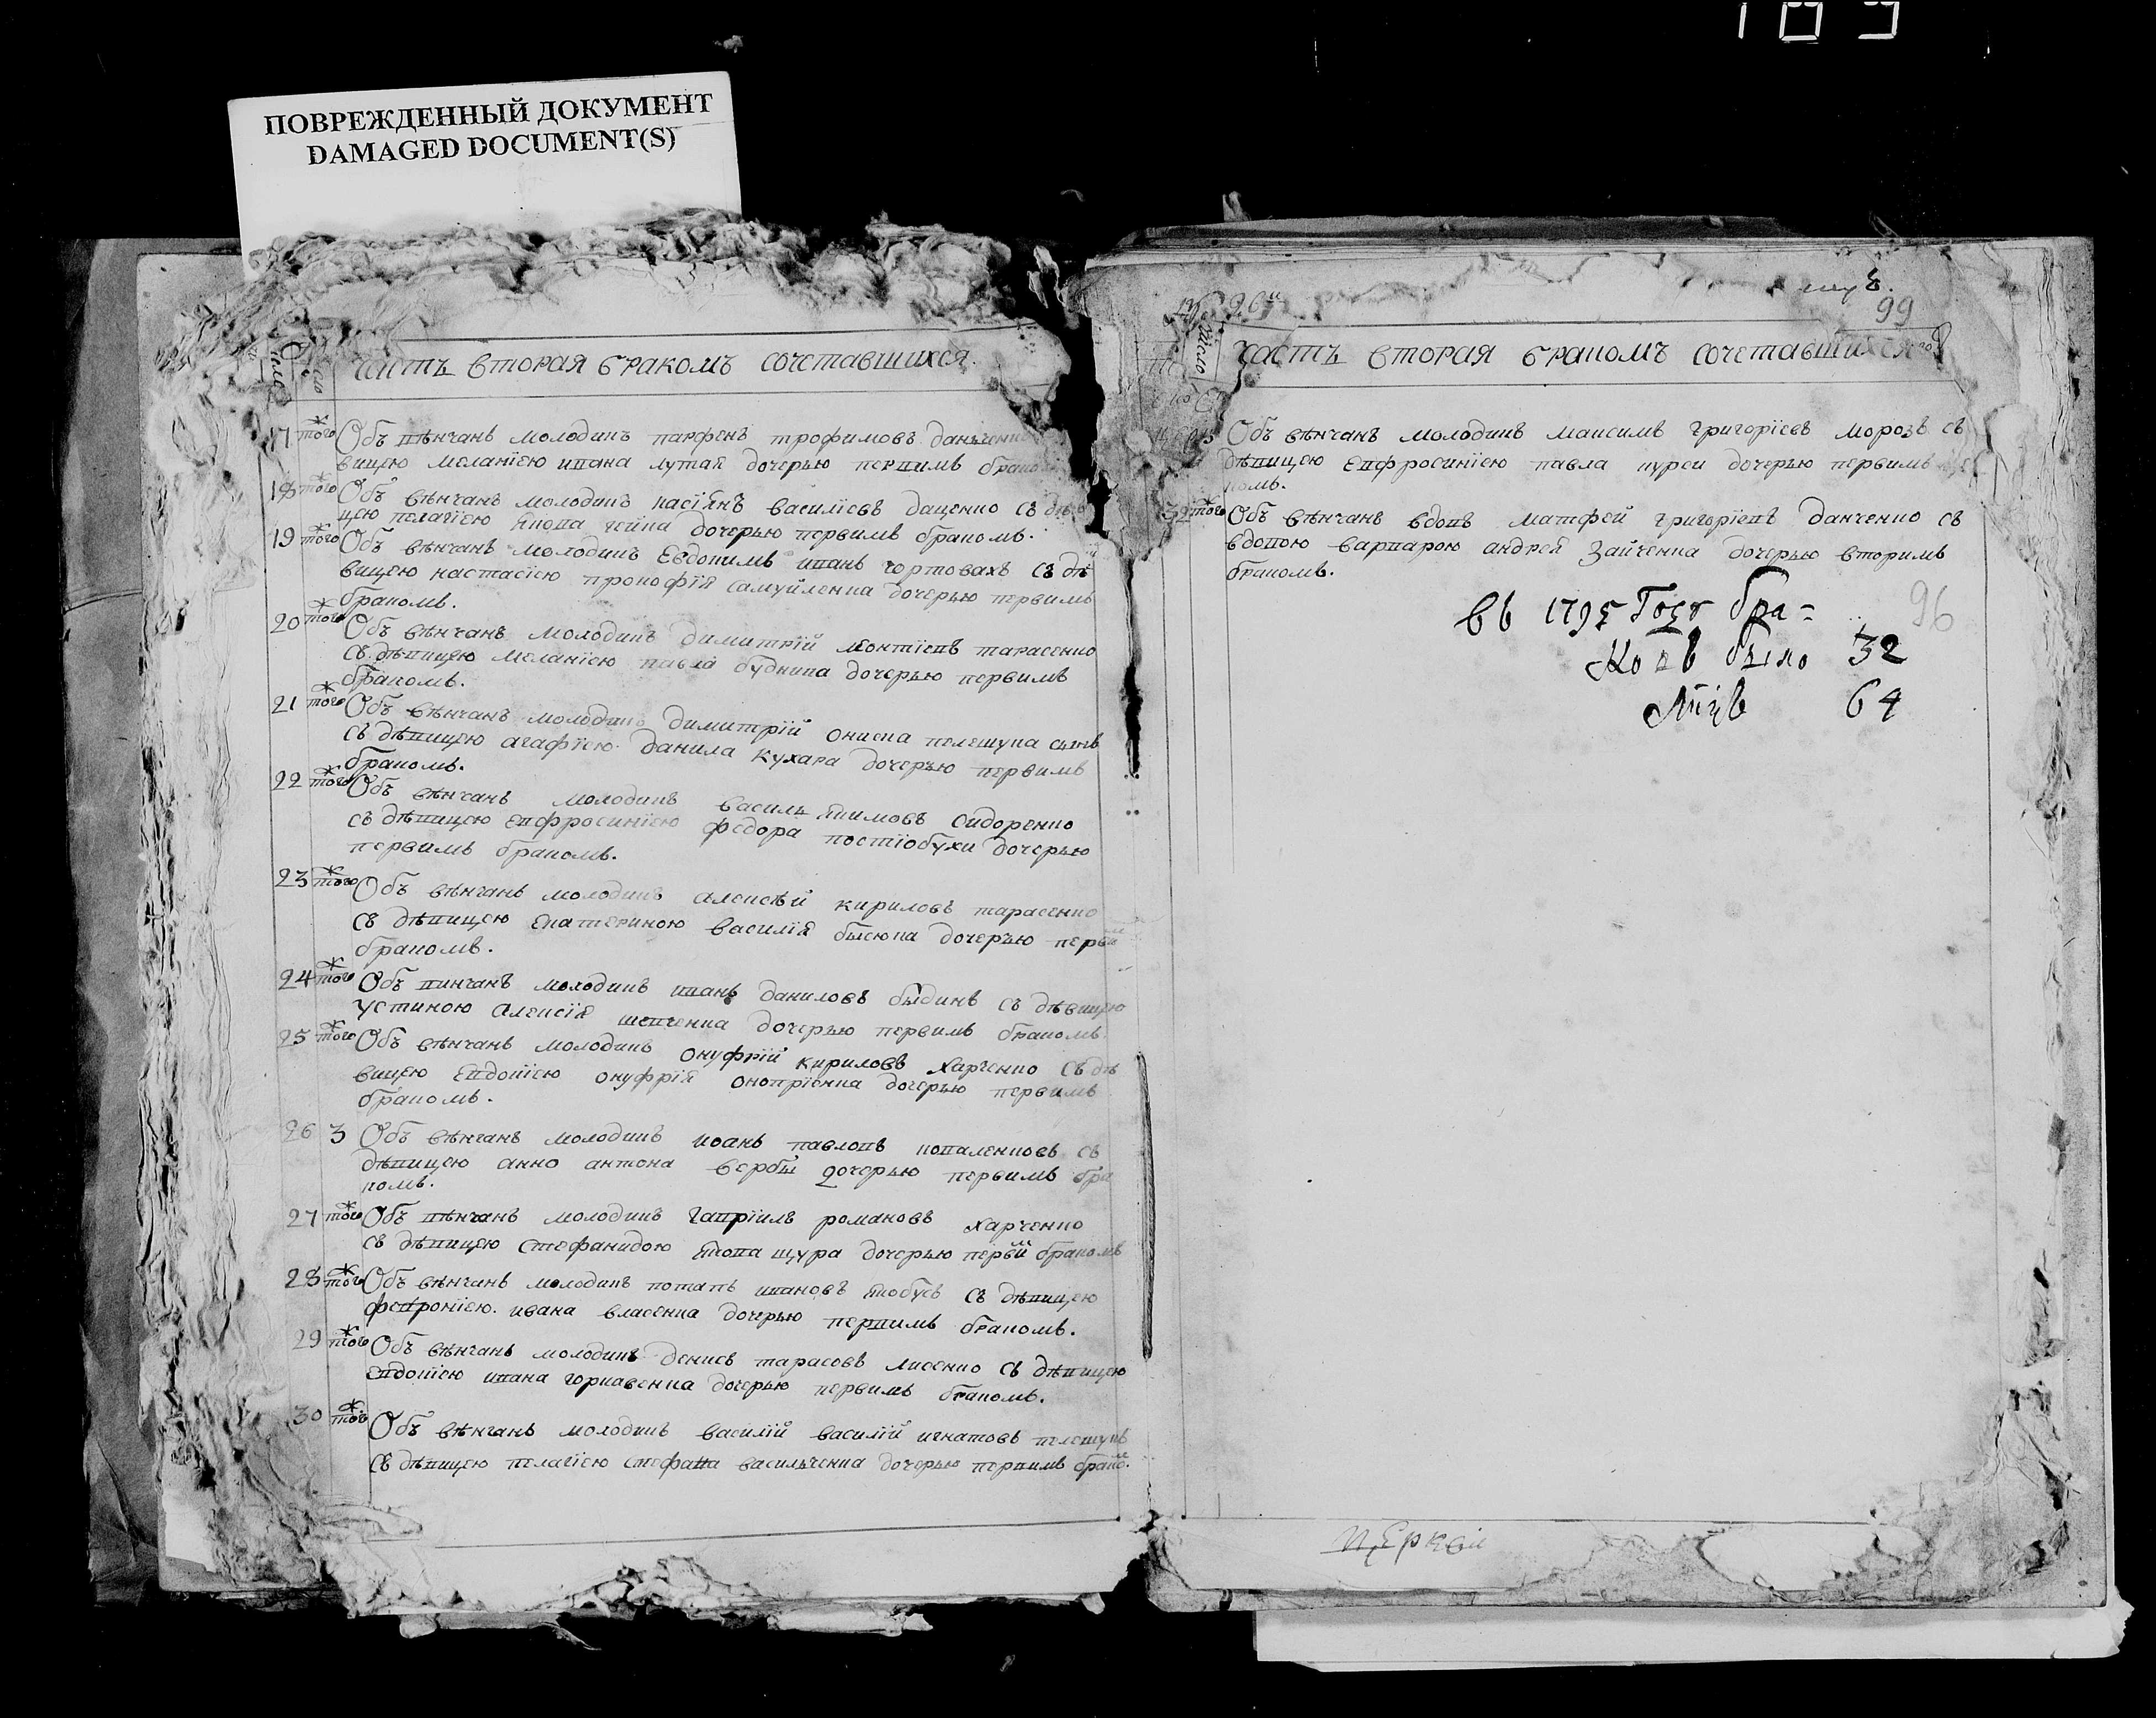 183
ПОВРЕЖДЕННЫЙ ДОКУМЕНТ
DAMAGED DOCUMENT(S)
часть вторая бракомъ сочетавшихся
17 того Объ вѣнчанъ молодикъ парфенъ трофимовъ
вицею меланїею ивана лутая дочерью первимъ
18 того Объ вѣнчанъ молодикъ касїянъ василїевъ даценко съ
цею пелагїею якова дочерью первимъ бракомъ.
19 того Объ вѣнчанъ молодикъ Евдокимъ иванъ чортовахъ съ дѣ
вицею настасїею прокофїя самуйленка дочерью первимъ
бракомъ.
20 того Объ вѣнчанъ молодикъ димитрїй леонтїевъ тарасенко
съ дѣвицею меланїею павла будника дочерью первимъ
бракомъ.
21 того Объ вѣнчанъ молодикъ димитрїй ониска пелешука сынъ
съ дѣвицею агафїею данила кухара дочерью первимъ
бракомъ.
22 того Объ вѣнчанъ молодикъ василь якимовъ сидоренко
съ дѣвицею евфросинїею федора постїобухи дочерью
первимъ бракомъ.
23 того Объ вѣнчанъ молодикъ алексѣй кириловъ тарасенко
съ дѣвицею екатериною василїя бысюка дочерью
бракомъ.
24 того Объ винчанъ молодикъ иванъ даниловъ быдинъ съ дѣвицею
устиною алексїя шевченка дочерью первимъ бракомъ.
25 того Объ вѣнчанъ молодикъ онуфрїй кириловъ харченко съ дѣ
вицею евдокїею онуфрїя онопрїенка дочерью первимъ
бракомъ.
26 3 Объ вѣнчанъ молодикъ иоанъ павловъ коваленковъ съ
дѣвицею анно антона вербы дочерью первимъ бра
комъ.
27 того Объ вѣнчанъ молодикъ гаврїилъ романовъ харченко
съ дѣвицею стефанидою якова щура дочерью бракомъ
28 того Объ вѣнчанъ молодикъ потапъ ивановъ якобусъ съ дѣвицею
февронїею ивана власенка дочерью первимъ бракомъ.
29 того Объ вѣнчанъ молодикъ денисъ тарасовъ лисенко съ дѣвицею
евдокїею ивана горкавенка дочерью первимъ бракомъ.
30 того Объ вѣнчанъ молодикъ василїй василїй игнатовъ пелешукъ
съ дѣвицею пелагїею стефана васильченка дочерью первимъ
99
число часть вторая бракомъ сочетавшихся
Объ вѣнчанъ молодикъ максимъ григорїевъ морозъ съ
дѣвицею евфросинїею павла курси дочерью первимъ
комъ.
32 того Объ вѣнчанъ вдовъ матфей григорїевъ данченко съ
вдовою варварою андрея зайченка дочерью вторимъ
бракомъ.
96
въ 1795 Году бра=
ковъ было 32
Лицъ 64